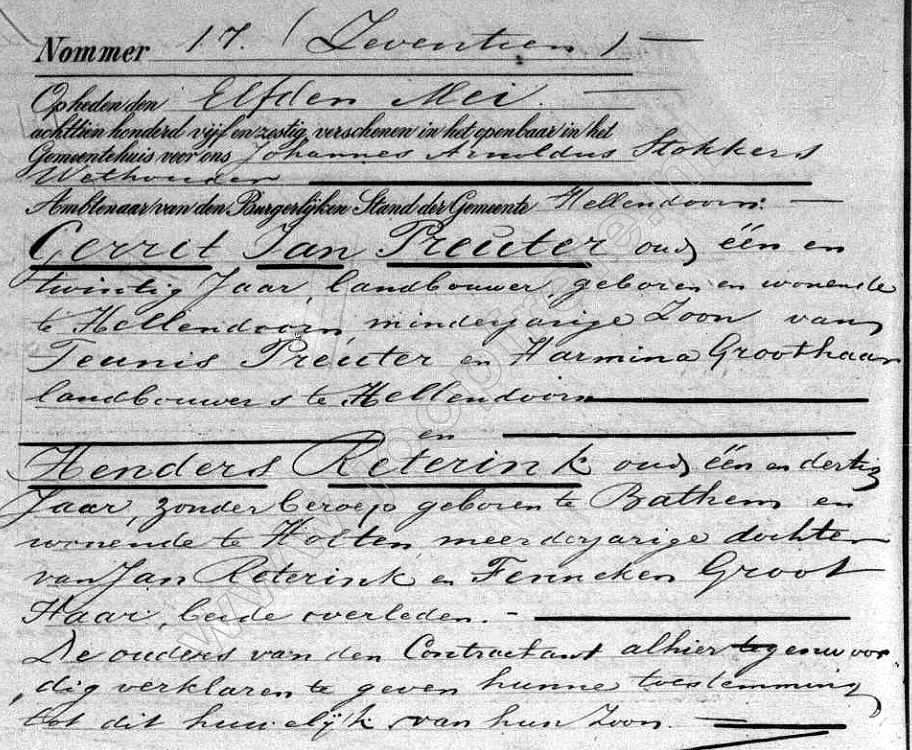 Nommer 17. (Zeventien)
Op heden den Elfden Mei.
achttien honderd vijf en zestig, verschenen in het openbaar in het
Gemeentehuis voor ons Johannes Arnoldus Stokkers
Wethouder
Ambtenaar van den Burgerlijken Stand der Gemeente Hellendoorn:
Gerrit Jan Preuter oud één en
twintig Jaar, landbouwer, geboren en wonende
te Hellendoorn, minderjarige Zoon van
Teunis Preuter en Harmina Groothaar
landbouwers te Hellendoorn
en
Henders Reterink oud één en dertig
Jaar, zonder beroep geboren te Bathem en
wonende te Holten, meerderjarige dochter
van Jan Reterink en Fenneken Groot
Haar, beide overleden.
De ouders van den Contractant alhier tegenwoor
dig verklaren te geven hunne toestemming
tot dit huwelijk van hun Zoon.
www.jooptrade.nl